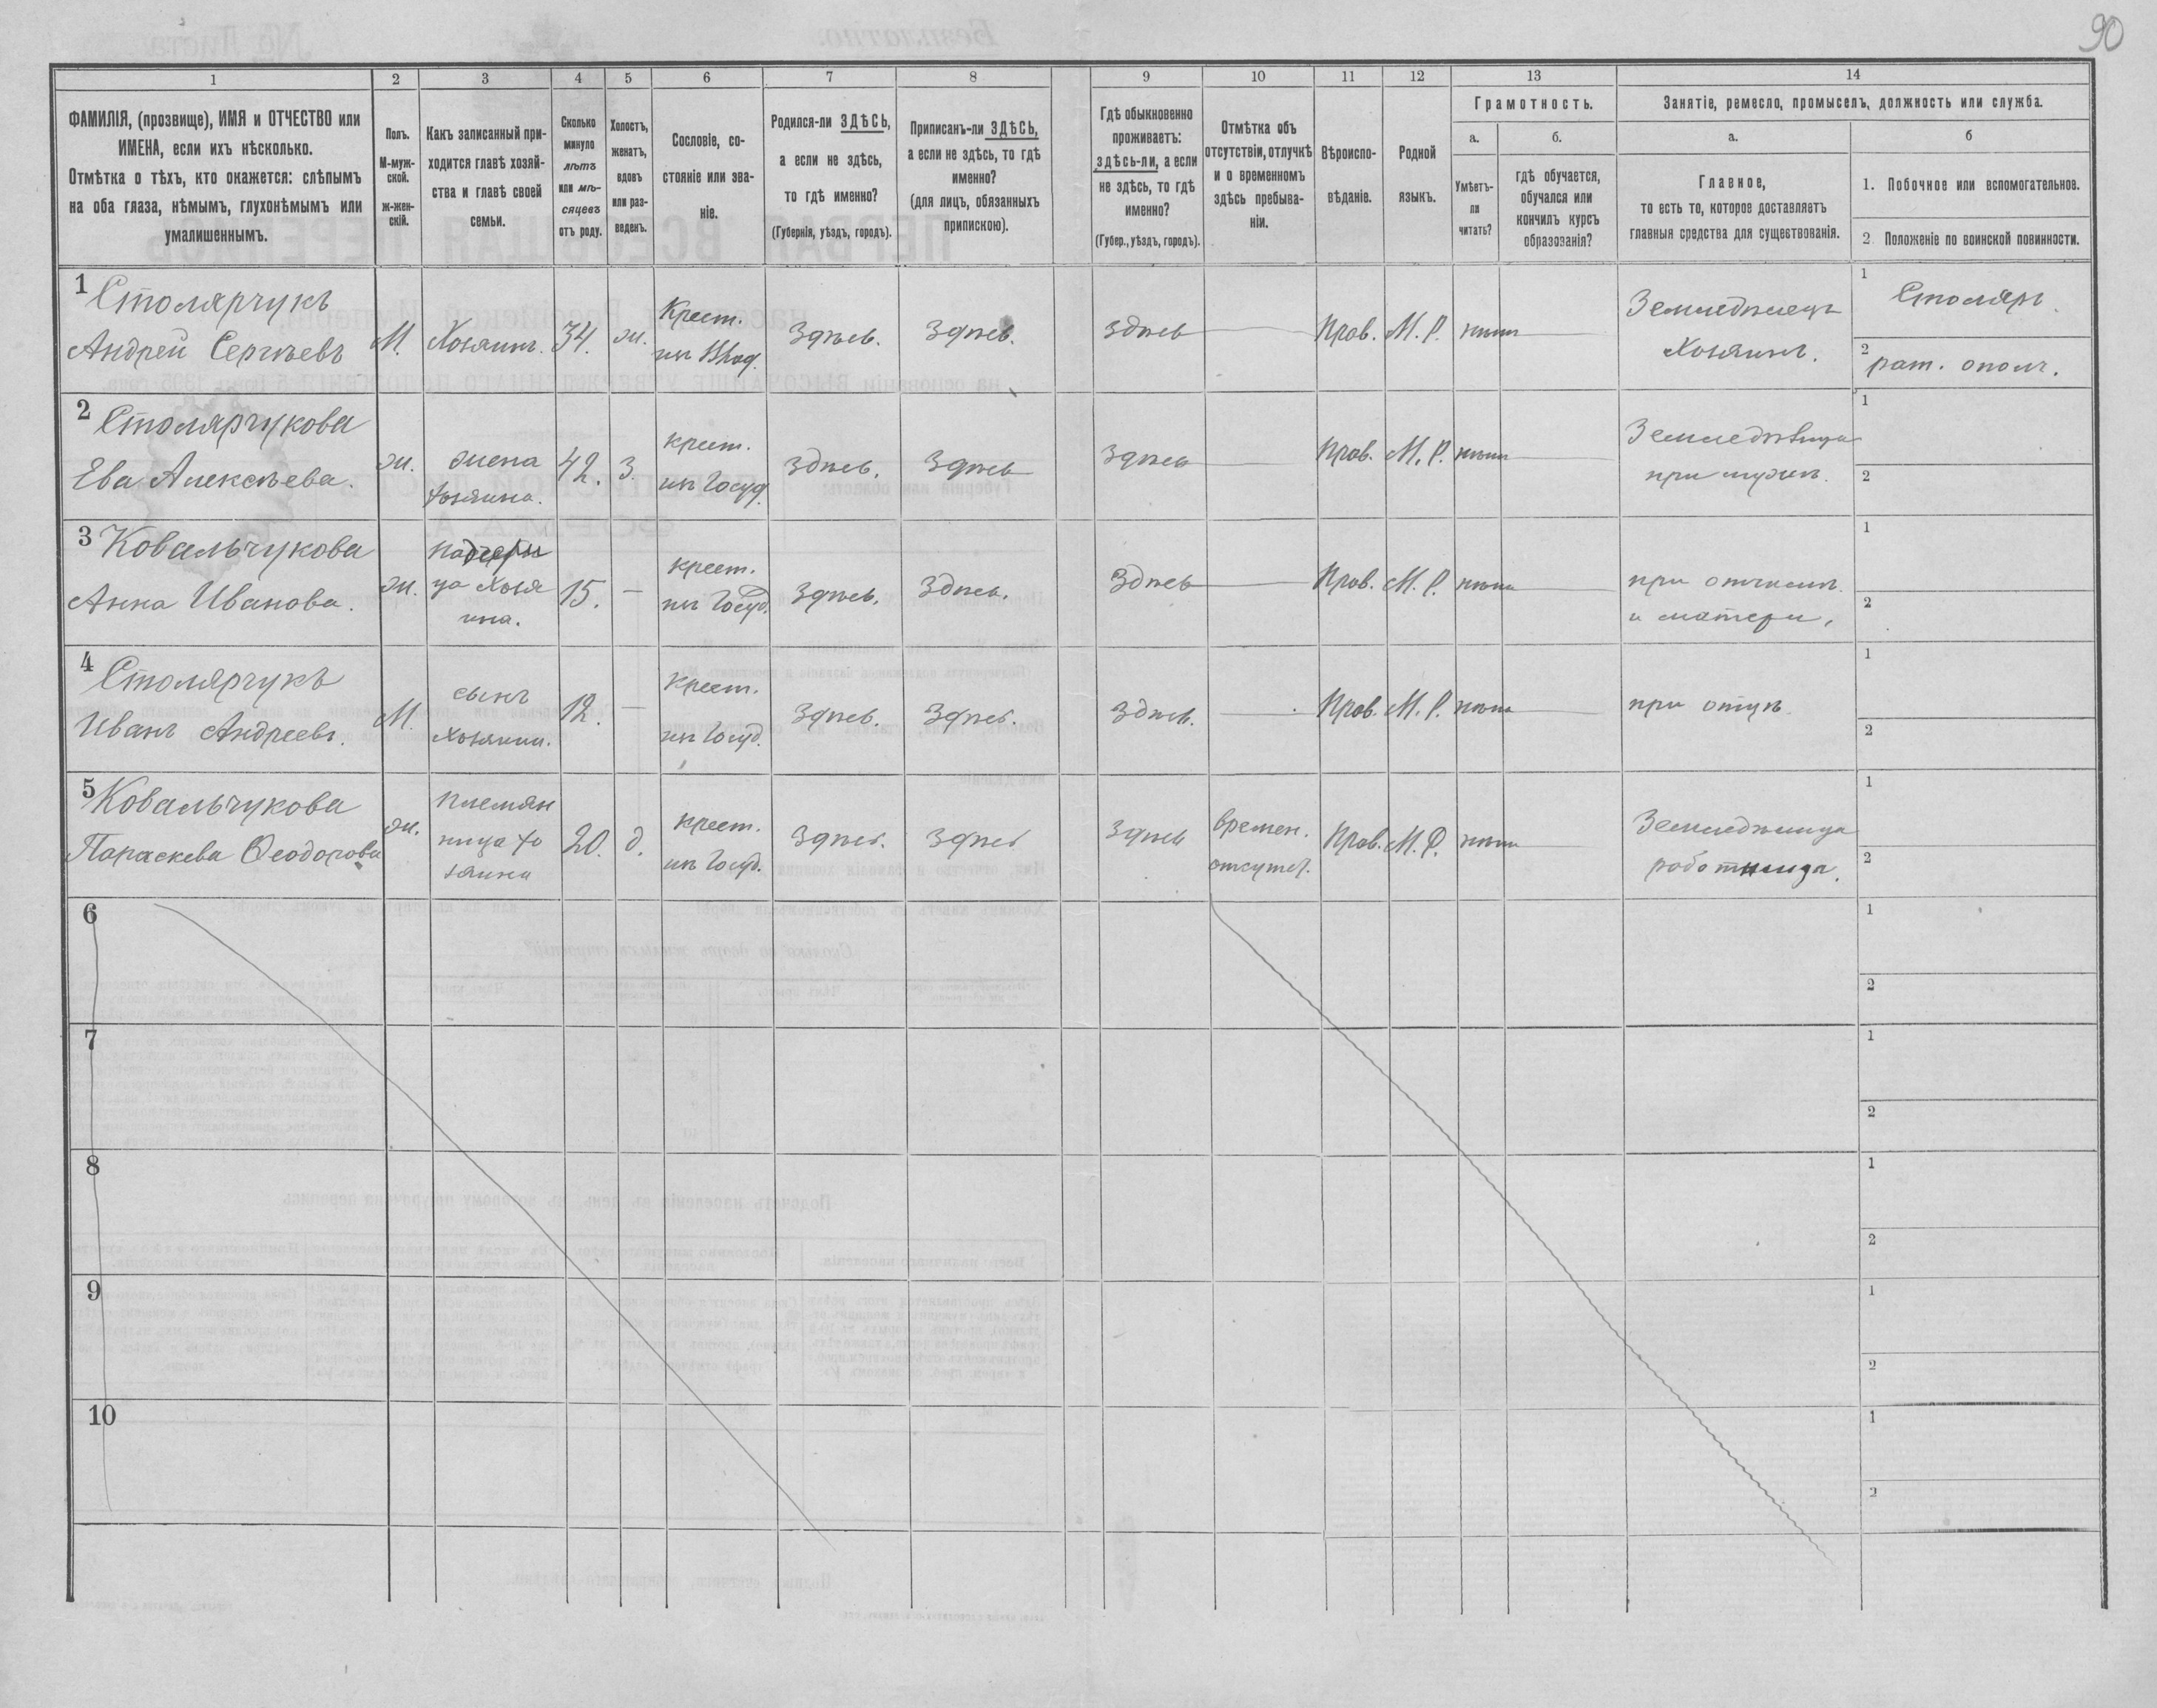 90
1 2 3 4 5 6 7 8 9 10 11 12 13 14
ФАМИЛІЯ, (прозвище), ИМЯ и ОТЧЕСТВО или
ИМЕНА, если ихъ нѣсколько.
Отмѣтка о тѣхъ, кто окажется: слѣпымъ
на оба глаза, нѣмымъ, глухонѣмымъ или
умалишеннымъ.
Полъ.
М-муж-
ской.
ж-жен-
скій.
Какъ записанный при-
ходится главѣ хозяй-
ства и главѣ своей
семьи.
Сколько
минуло
лѣтъ
или мѣ-
сяцевъ
отъ роду.
Холостъ,
женатъ,
вдовъ
или раз-
веденъ.
Сословіе, со-
стояніе или зва-
ніе.
Родился-ли ЗДѢСЬ,
а если не здѣсь,
то гдѣ именно?
(Губернія, уѣздъ, городъ).
Приписанъ-ли ЗДѢСЬ,
а если не здѣсь, то гдѣ
именно?
(для лицъ, обязанныхъ
припискою).
Гдѣ обыкновенно
проживаетъ:
здѣсь-ли, а если
не здѣсь, то гдѣ
именно?
(Губер., уѣздъ, городъ).
Отмѣтка объ
отсутствіи, отлучкѣ
и о временномъ
здѣсь пребыва-
ніи.
Вѣроиспо-
вѣданіе.
Родной
языкъ.
Грамотность.
а.
Умѣетъ-
ли
читать?
б.
гдѣ обучается,
обучался или
кончилъ курсъ
образованія?
Занятіе, ремесло, промыселъ, должность или служба.
а.
Главное,
то есть то, которое доставляетъ
главныя средства для существованія.
б
1. Побочное или вспомогательное.
2. Положеніе по воинской повинности.
1 Столярчукъ
Андрей Сергѣевъ
М.
Хозяинъ.
34.
ж.
Крест.
изъ
Здѣсь.
Здѣсь.
Здѣсь
Прав.
М. Р.
нѣтъ
Земледѣлецъ
Хозяинъ.
1 Столяръ
2 рат. ополч.
2 Столярчукова
Ева Алексѣева.
ж.
жена
хозяина.
42.
З.
крест.
изъ Госуд.
Здѣсь.
Здѣсь
Здѣсь
Прав.
М. Р.
нѣтъ
Земледѣлица
при мужѣ.
1
2
3 Ковальчукова
Анна Иванова.
ж.
Падчери
ца Хозя
ина.
15.
—
крест.
изъ Госуд.
Здѣсь.
Здѣсь.
Здѣсь
Прав.
М. Р.
нѣтъ
при отчимѣ
и матери.
1
2
4 Столярчукъ
Иванъ Андреевъ.
М.
сынъ
Хозяина.
12.
—
Крест.
изъ Госуд.
Здѣсь.
Здѣсь.
Здѣсь.
Прав.
М. Р.
нѣтъ
при отцѣ
1
2
5 Ковальчукова
Параскева Ѳеодорова
ж.
племян
ница хо
зяина
20.
д.
крест.
изъ Госуд.
Здѣсь.
Здѣсь
Здѣсь
времен.
отсутст.
Прав.
М. Р.
нѣтъ
Земледѣлица
работница.
1
2
6
1
2
7
1
2
8
1
2
9
1
2
10
1
2